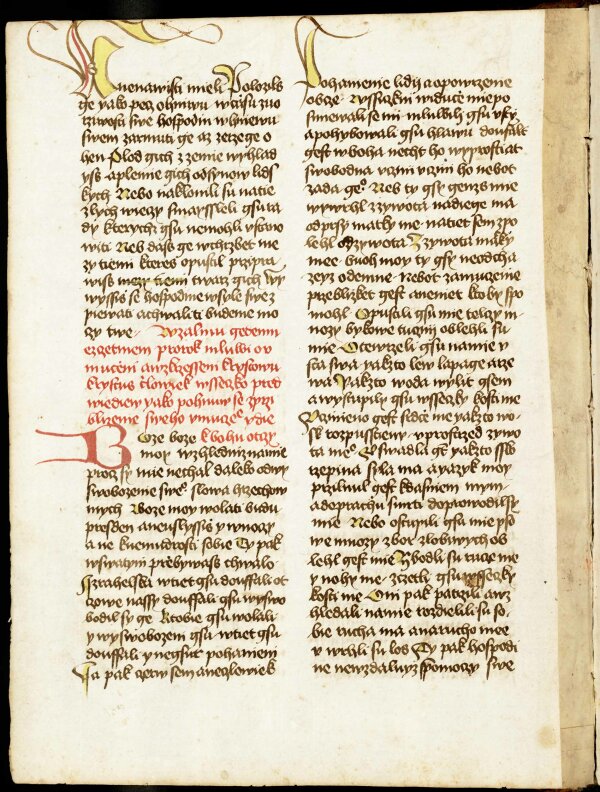 nenawisti mieli Polozils
ge yako pecz ohniwu wczasu zuo
rziwosti swe hospodin whniewu
swem zarmuti ge az zezze ge o
hen Plod gich z zemie wyhlad
yss aplemie gich odsynow lids
kych Nebo naklonili su natie
zlych wieczy smayssleli gsu ra
dy kterych gsu nemohli vstano
witi Neb dass ge wchrzbet me
zy tiemi kterez opustil przipra
wiss twarz gich Wy
wyssis se hospodine wsyle swe z
piewati achwaliti budeme mo
czy twe Wzalmu
prorok mluwi o v
muceni a wzkrzisseni krystowu
Krystus człowiek wssecko pred
wiediew yako pohnuw se przi
blizenie sweho vmucze
Boze boze kbohu otczy
moy wzhledni na mie
procz sy mie nechal daleko od wy
swobozenie swe slowa hrzechow
mych Boze moy wolati budu
przesden a neuslyssis y wnoczy
a ne knemudrosti sobie Ty pak
wswatym prziebywass chwalo
Izrahelska wtiet gsu douffali ot
czowe nassy douffali gsu wyswo
bodil sy ge Ktobie gsu wolali
y wyswobozeni gsu wtiet gsu
douffali y negsut pohanieni
Ja pak czrw sem a neczlowiek
Pohanienie lidy a opowrzenie
obcze Wssiczkni widucze mie po
smiewali se mi mluwili gsu vsty
a pohybowali gsu hlawu douffal
gest wboha necht ho wyprostiat
swobodna vczini vczini ho nebot
zada ge Neb ty gsy genz mie
wywrhl zzywota nadiege ma
od prsy matky me natiet sem zpo
lehl Zzywota Zzywota matky
mee buoh moy ty gsy neodcha
zeyz odemne Nebot zamucenie
przeblizket gest anemiet kto by spo
mohl Opsali gsu me telczy m
nozy bykowe tucznij oblehli su
mie Otewrzeli gsu namie v
sta swa yakzto lew lapage a rze
wa Yakzto woda wylit gsem
a wystupily gsu wsseczky kosti me
Vczinieno gest srdce me yakzto wo
sk rozpusstieny vprostrzed zywo
ta me Oswadla gt yakzto sstr
zepina sila ma a yazyk moy
przilnul gest kdasniem mym
a doprachu smrti doprowodilsy
mie Nebo ostupili gsu mie pso
we mnozy zbor zlobiwych ob
lehl gest mie Zbodli su rucze me
y nohy me Zczetli gsu wsseczky
kosti me Oni pak patrzili a wz
hledali na mie rozdielili su so
bie rucha ma a narucho mee
v wrhli su los Ty pak hospodi
ne newzdaluyz spomoczy swe